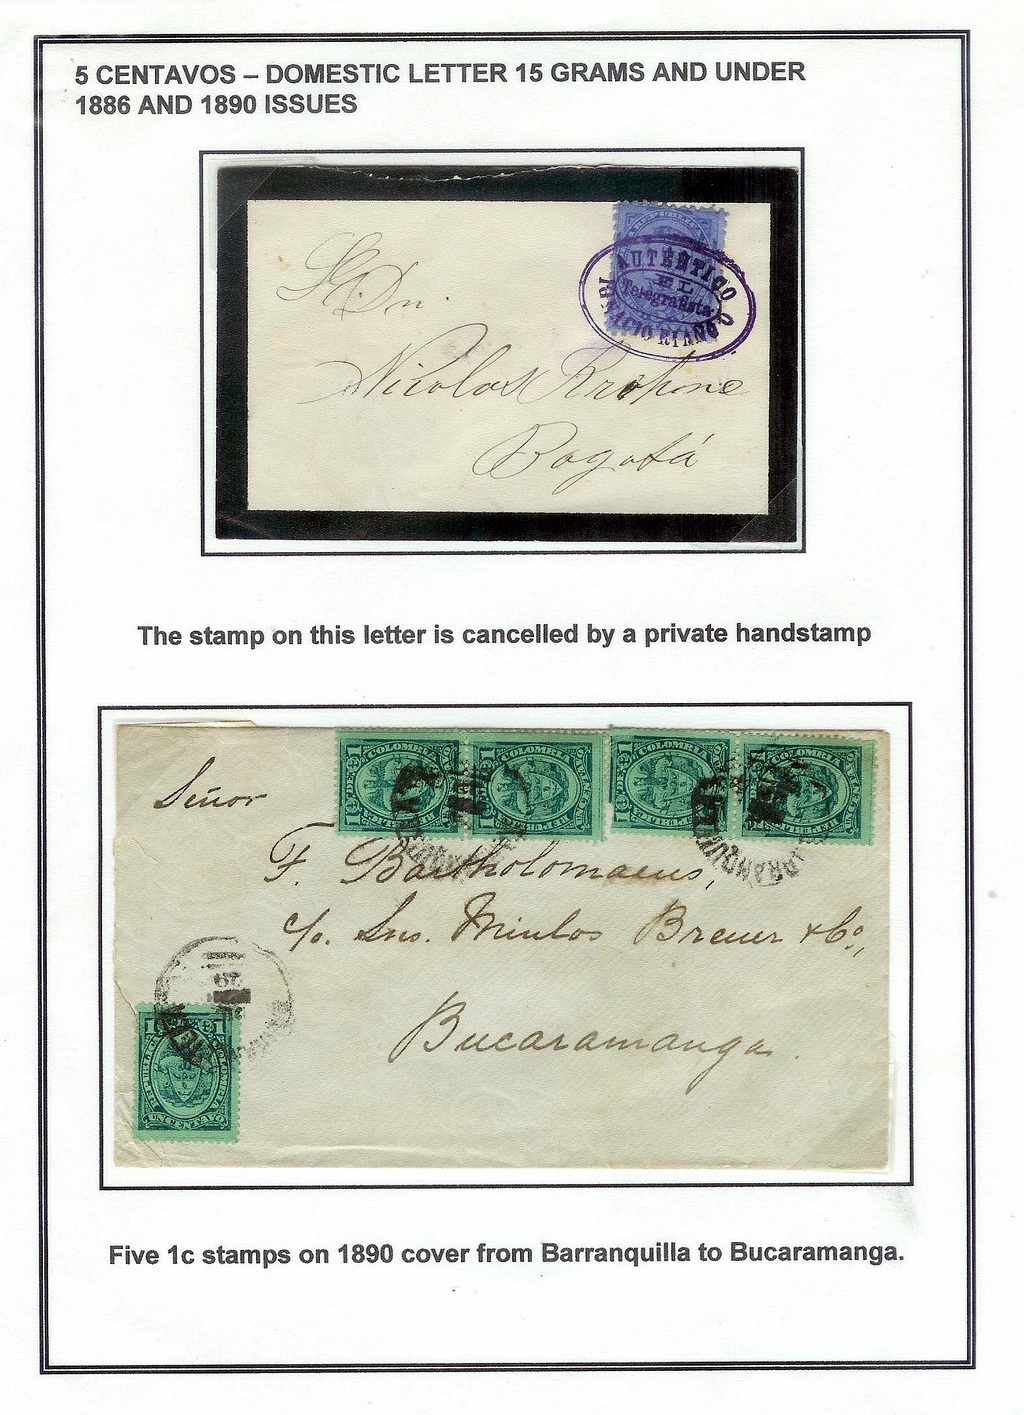 5 CENTAVOS – DOMESTIC LETTER 15 GRAMS AND UNDER
1886 AND 1890 ISSUES
AUTÉNTICO
EL
Telegrafista
IGNACIO RIAÑO C
S. Dn.
Nicolas
Bogotá
The stamp on this letter is cancelled by a private handstamp
COLOMBIA
COLOMBIA
COLOMBIA
COLOMBIA
Señor
F. Bartholomaeus,
c/o. Sres. Minlos Breuer & Co,
Bucaramanga.
29
1 1
UN CENTAVO
Five 1c stamps on 1890 cover from Barranquilla to Bucaramanga.